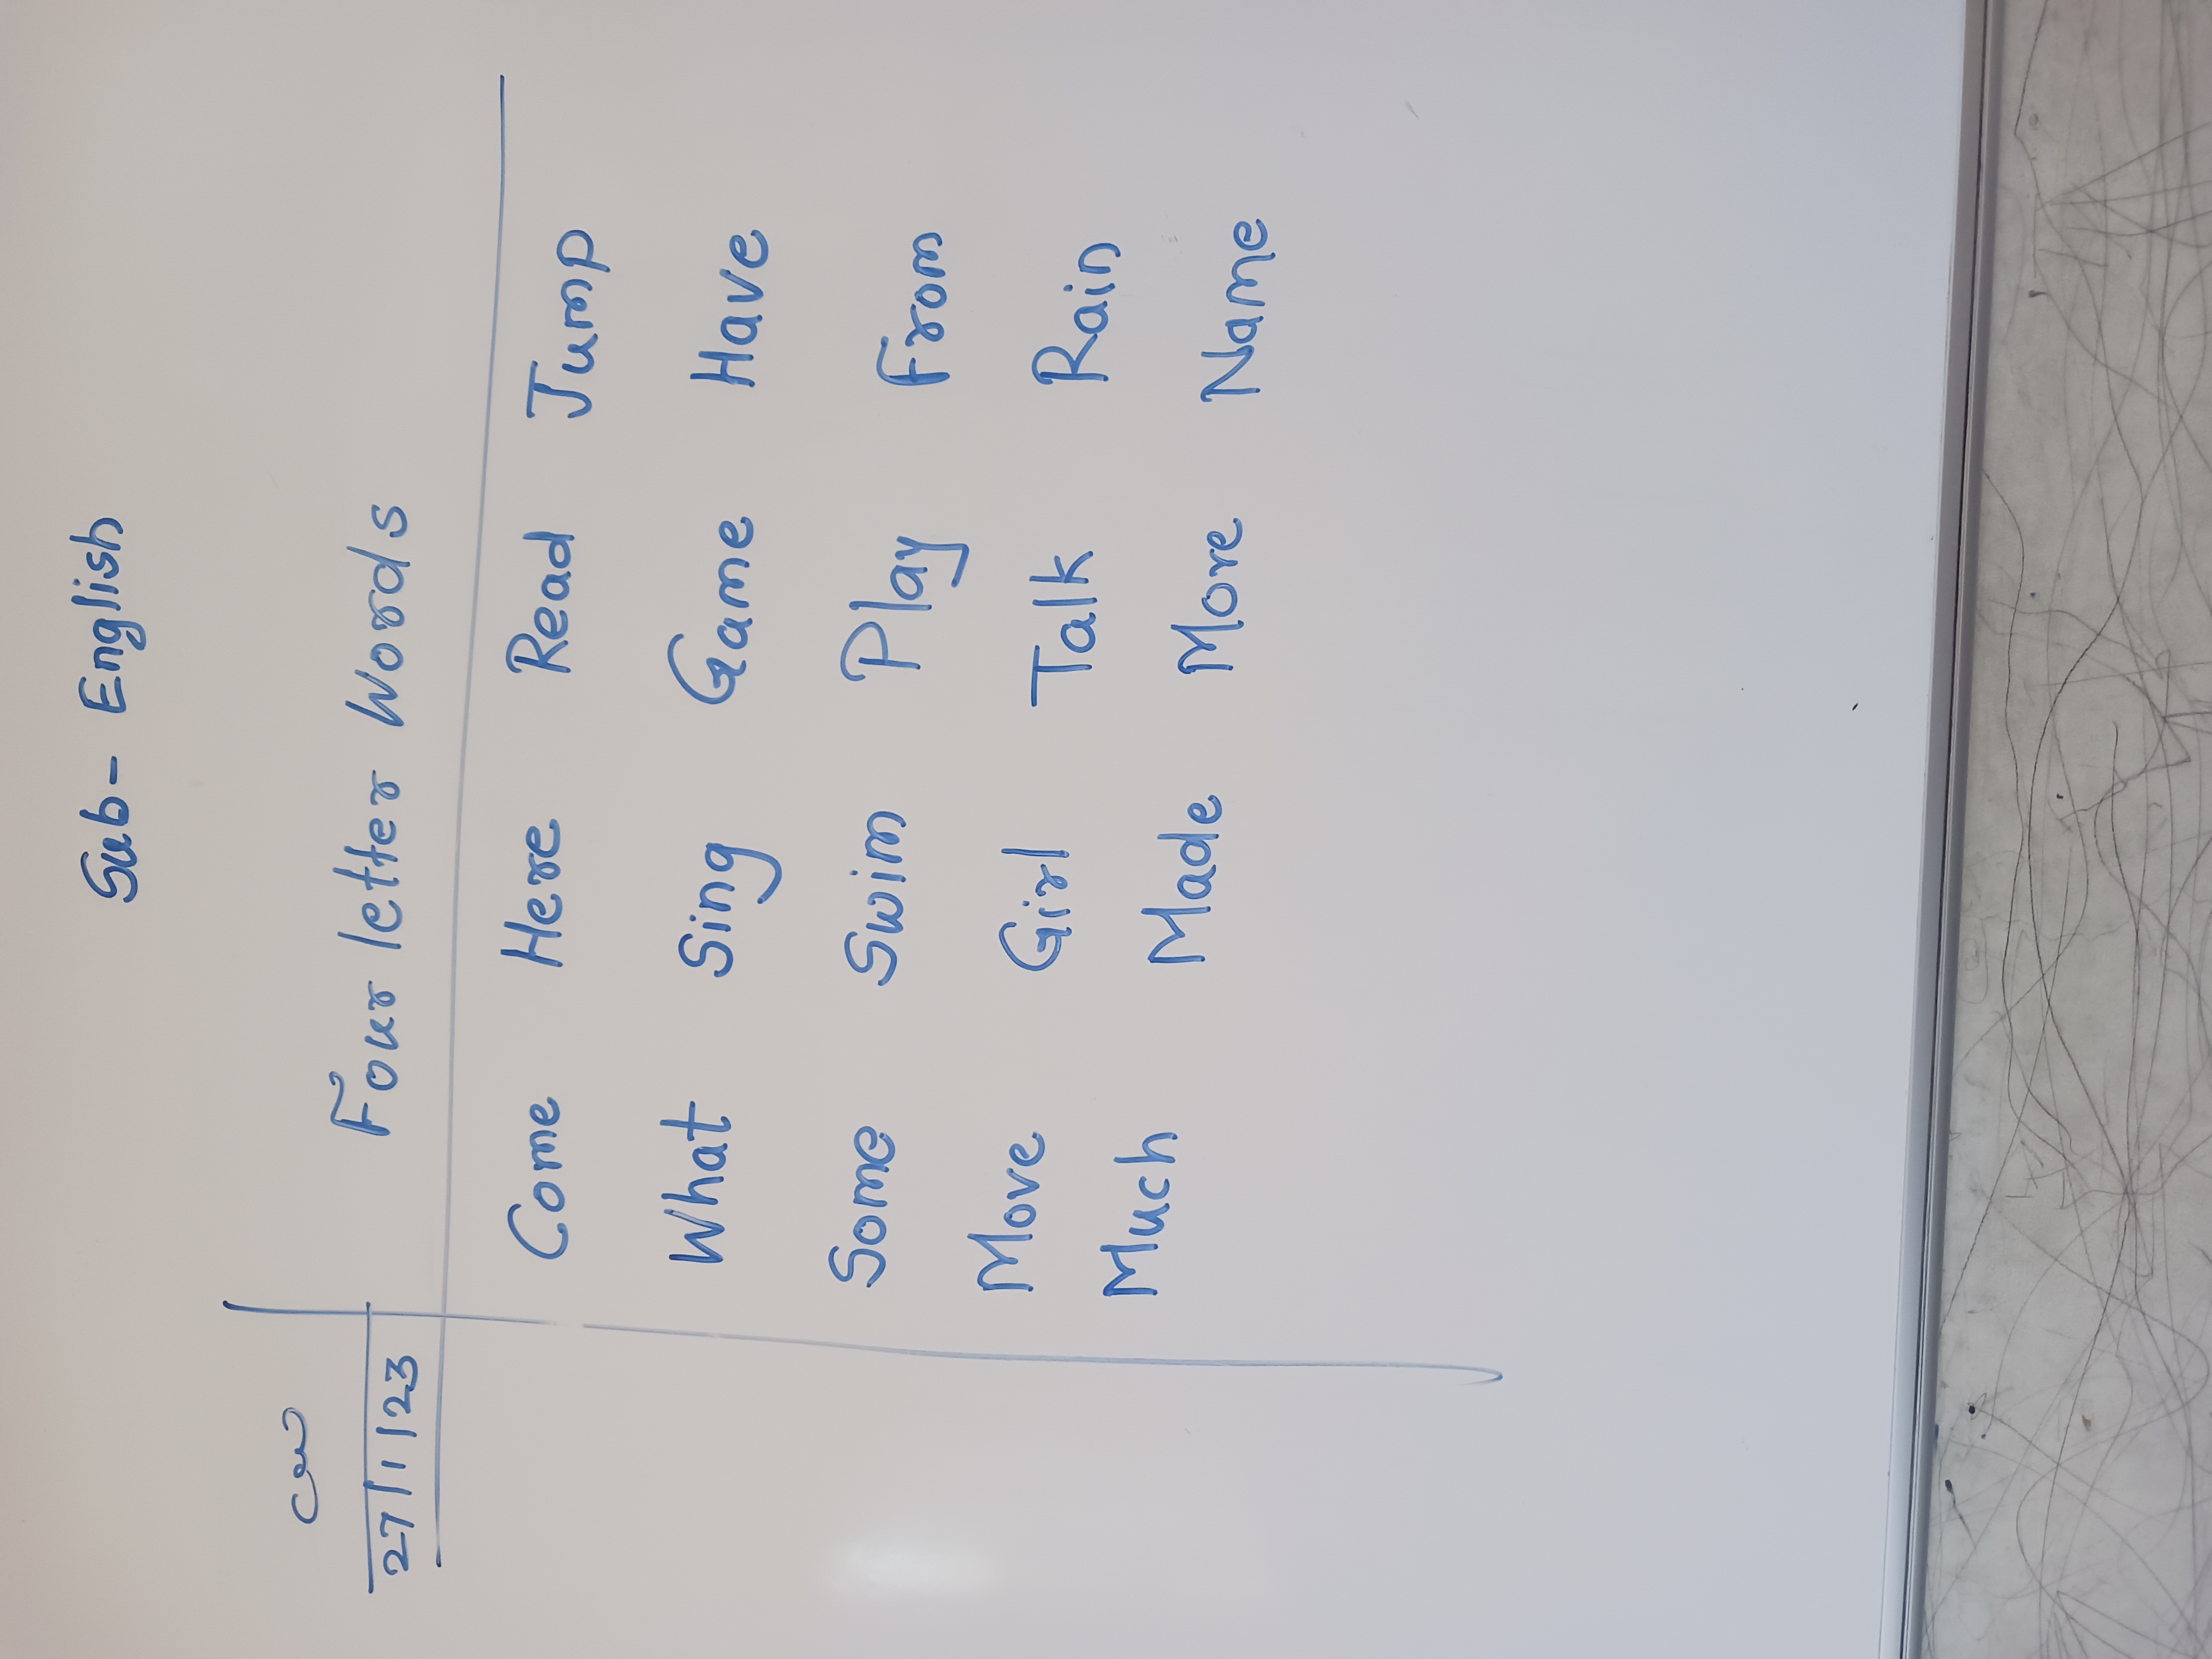 Sub- English
CW
27/1/23
Four letter Words
Come Here Read Jump
What Sing Game Have
Some Swim Play From
Move Girl Talk Rain
Much Made More Name